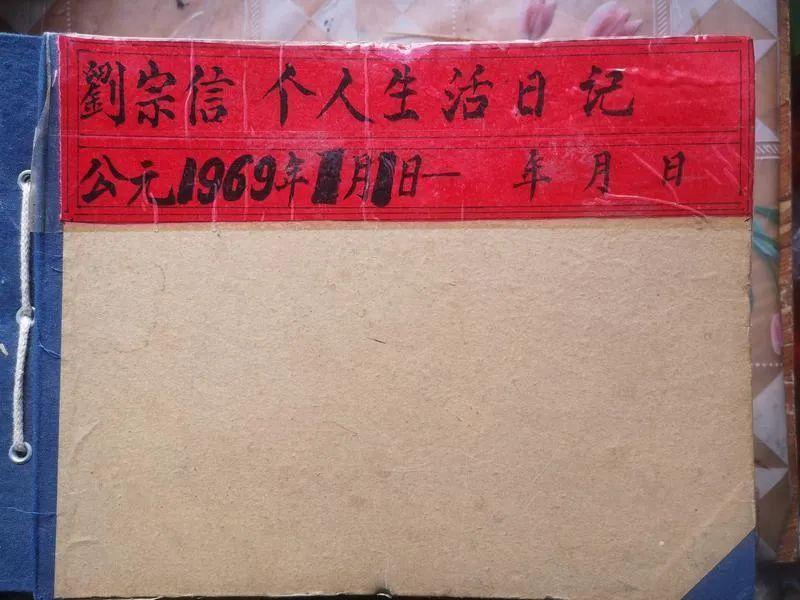 劉宗信 个人生活日记
公元1969年1月1日— 年 月 日